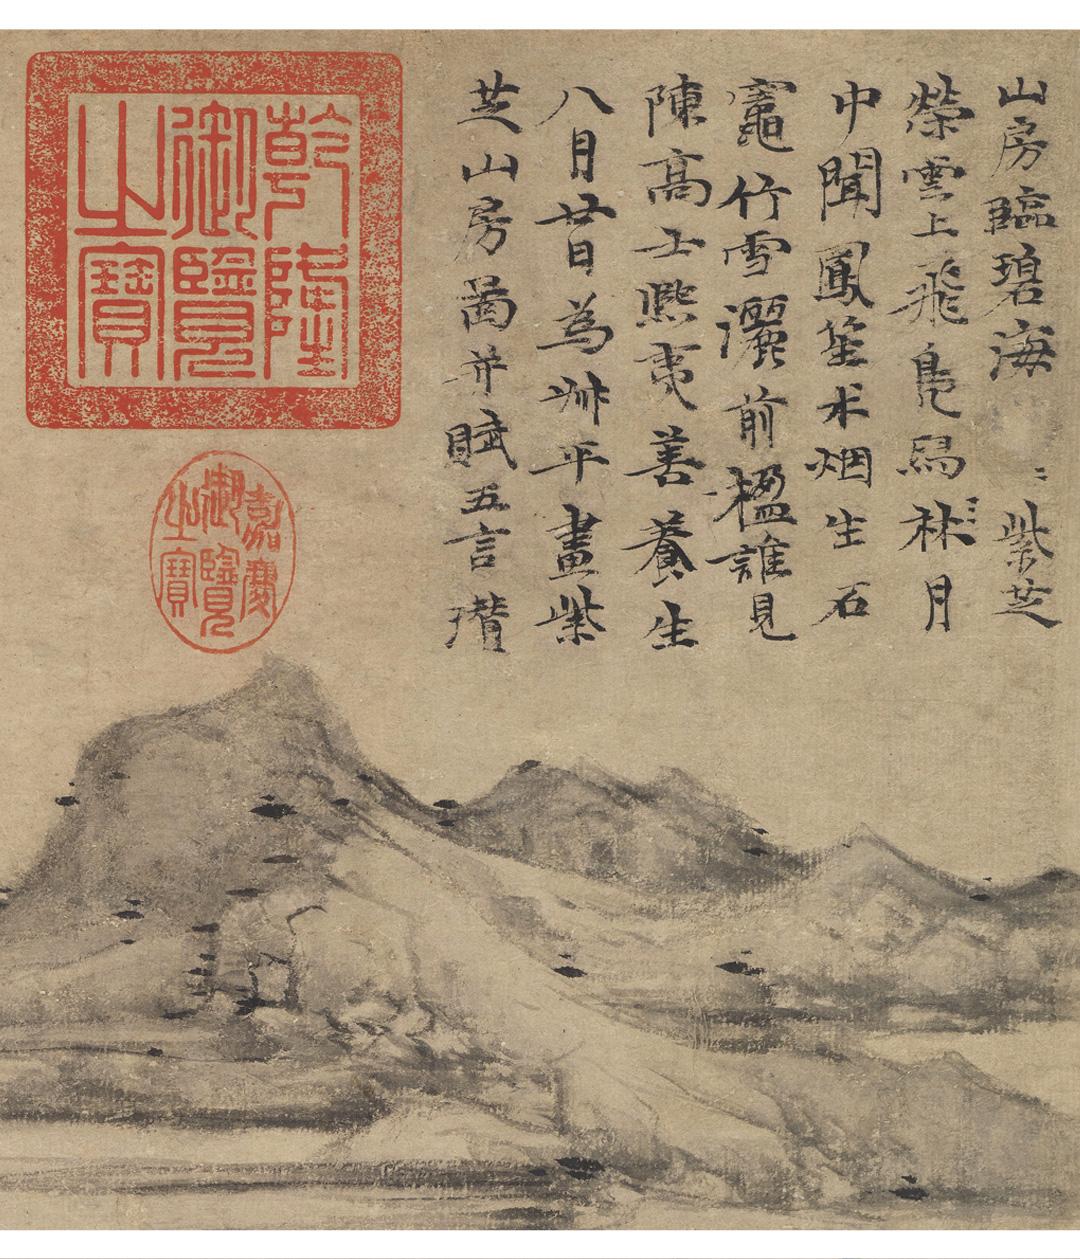 山房臨碧海紫芝
榮雲上飛鳧舄林月
中聞鳳笙朮烟生石
竈竹雪灑前楹誰見
陳高士熙夷善養生
八月廿日為叔平畫紫
芝山房啚并賦五言瓚
乾隆
御覽
之寶
嘉慶
御覽
之寶